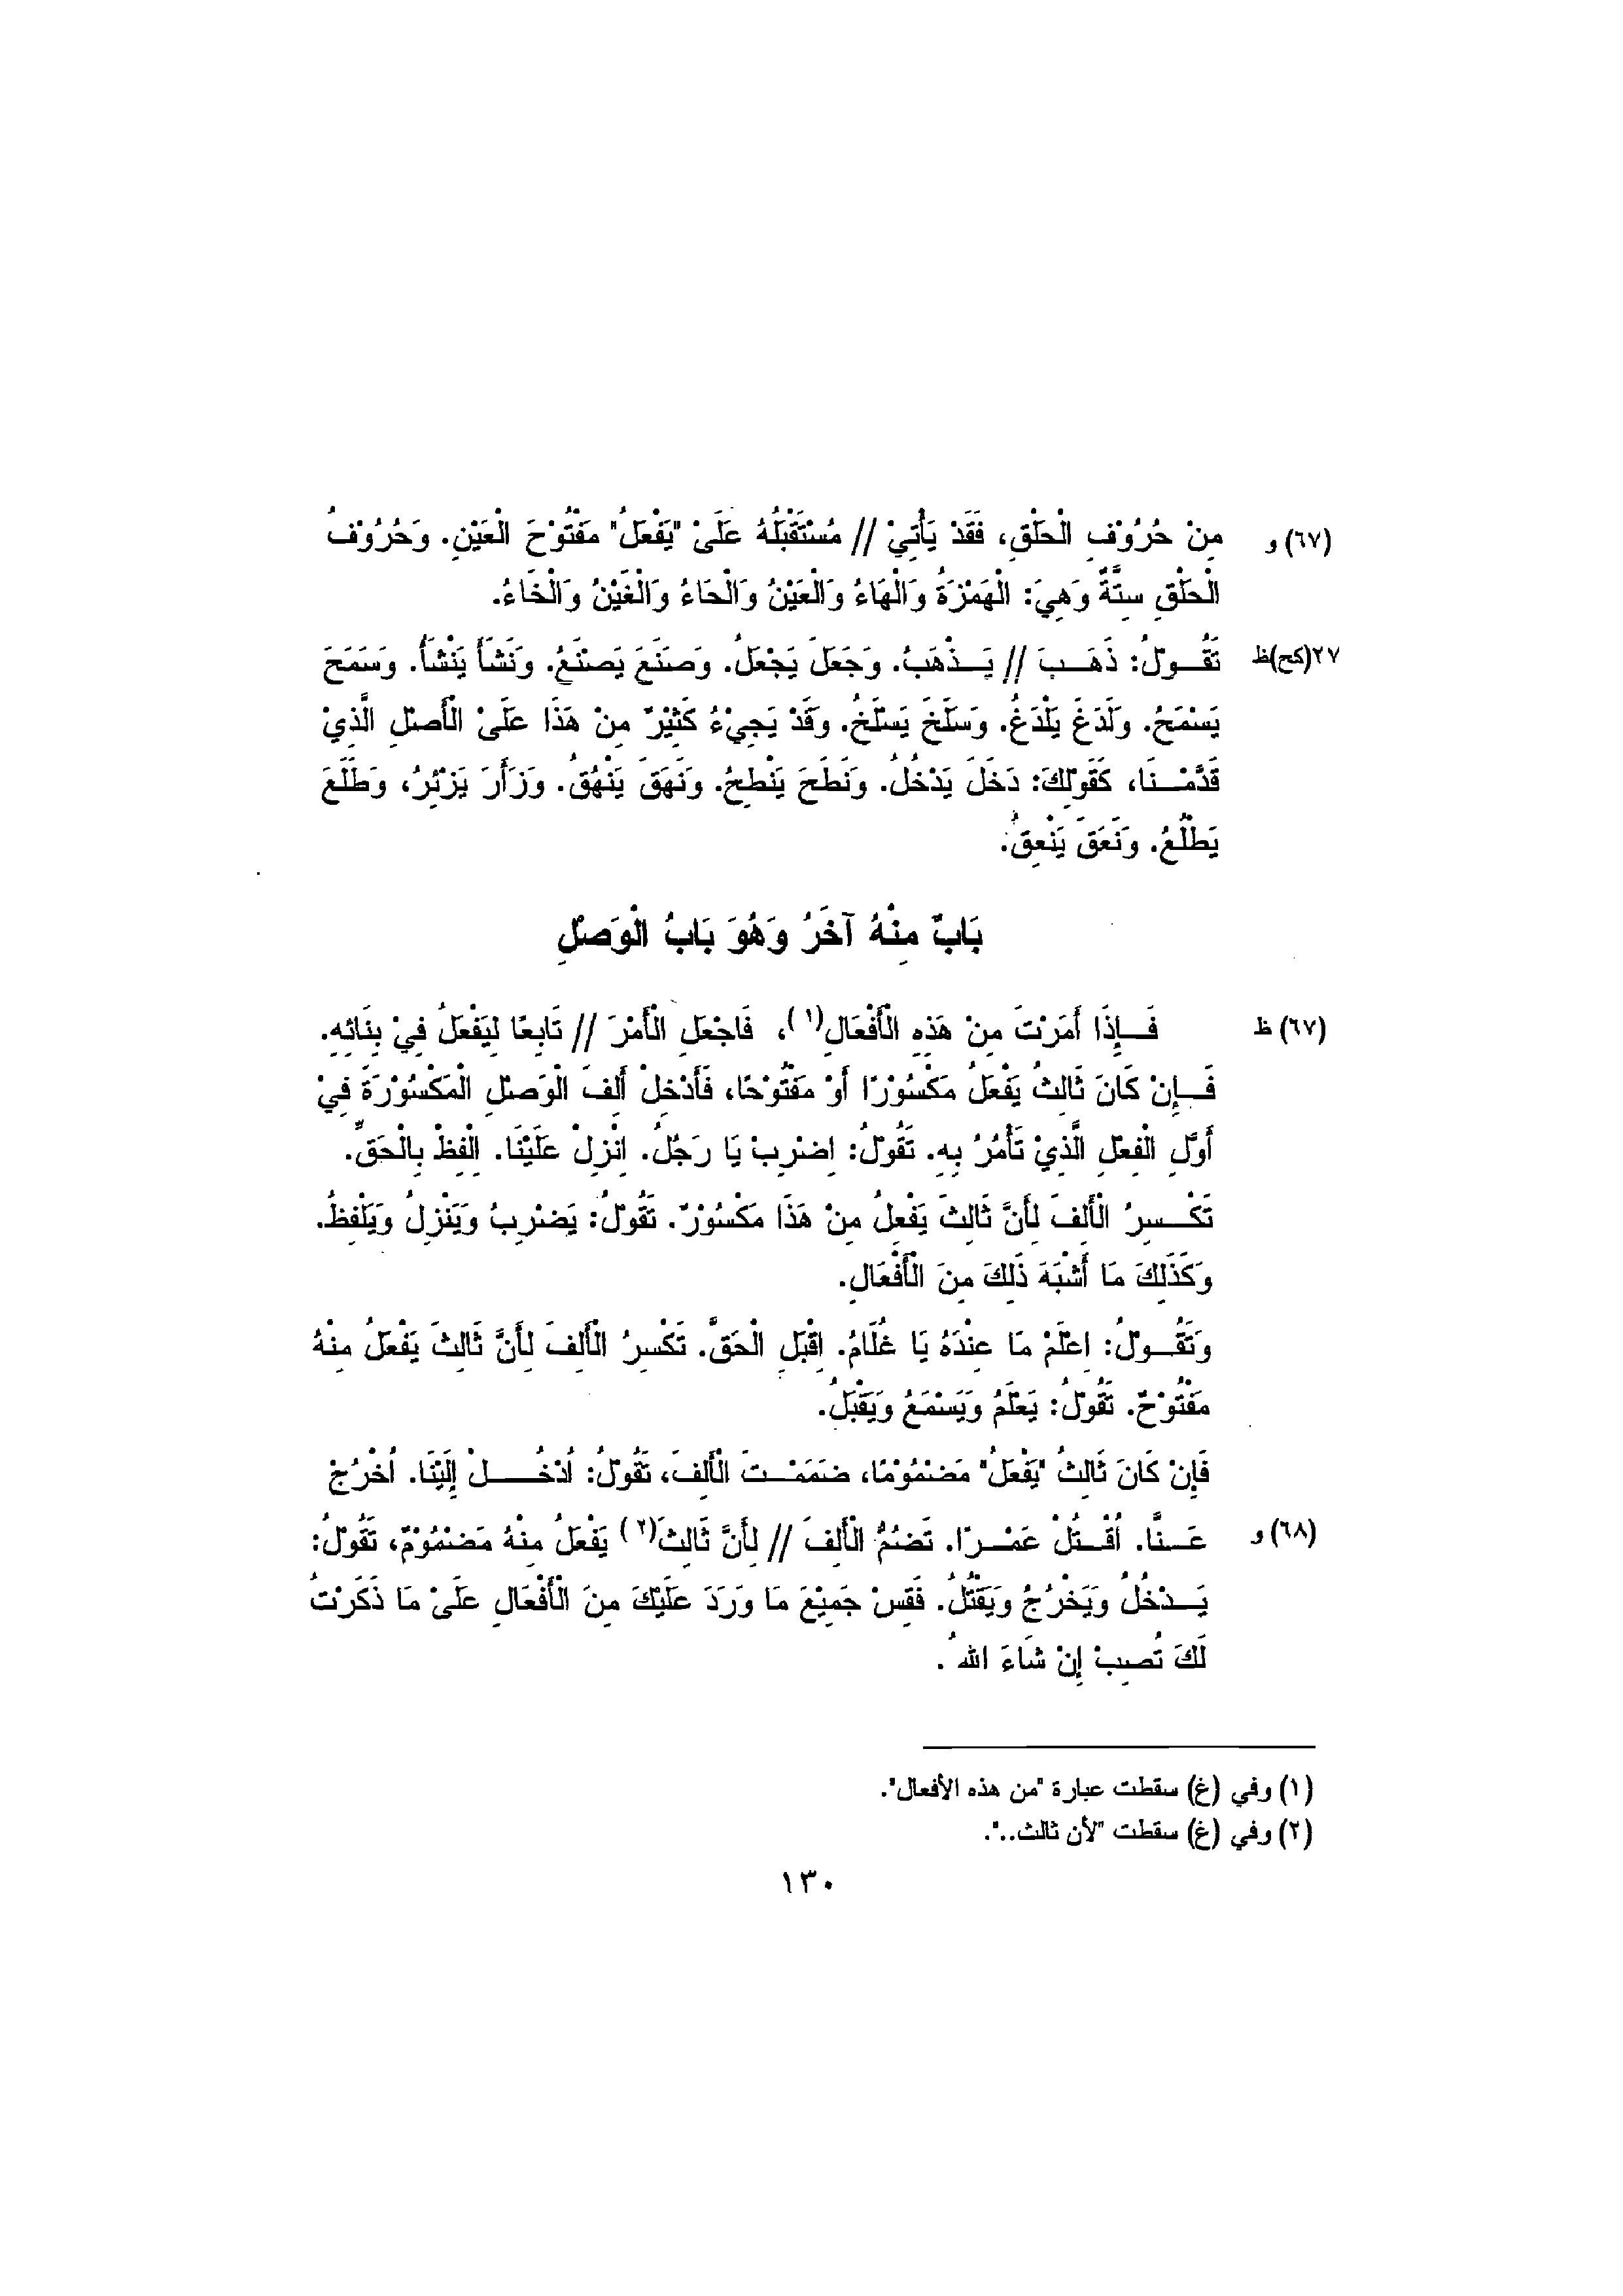 (٦٧) و مِنْ حُرُوْفِ الْحَلْقِ، فَقَدْ يَأْتِيْ // مُسْتَقْبَلُهُ عَلَىْ "يَفْعَلُ" مَفْتُوْحَ الْعَيْنِ. وَحُرُوْفُ
الْحَلْقِ سِتَّةٌ وَهِيَ: الْهَمْزَةُ وَالْهَاءُ وَالْعَيْنُ وَالْحَاءُ وَالْغَيْنُ وَالْخَاءُ.
٢٧(كح)ظ تَقُـــوْلُ: ذَهَـــبَ // يَـــذْهَبُ. وَجَعَلَ يَجْعَلُ. وَصَنَعَ يَصْنَعُ. وَنَشَأَ يَنْشَأُ. وَسَمَحَ
يَسْمَحُ. وَلَدَغَ يَلْدَغُ. وَسَلَخَ يَسْلَخُ. وَقَدْ يَجِيْءُ كَثِيْرٌ مِنْ هَذَا عَلَىْ الْأَصْلِ الَّذِيْ
قَدَّمْـــنَا، كَقَوْلِكَ: دَخَلَ يَدْخُلُ. وَنَطَحَ يَنْطِحُ. وَنَهَقَ يَنْهُقُ. وَزَأَرَ يَزْئِرُ، وَطَلَعَ
يَطْلُعُ. وَنَعَقَ يَنْعِقُ.
بَابٌ مِنْهُ آخَرُ وَهُوَ بَابُ الْوَصْلِ
(٦٧) ظ فَـــإِذَا أَمَرْتَ مِنْ هَذِهِ الْأَفْعَالِ(١)، فَاجْعَلِ الْأَمْرَ // تَابِعًا لِيَفْعَلُ فِيْ بِنَائِهِ.
فَـــإِنْ كَانَ ثَالِثُ يَفْعَلُ مَكْسُوْرًا أَوْ مَفْتُوْحًا، فَأَدْخِلْ أَلِفَ الْوَصْلِ الْمَكْسُوْرَةَ فِيْ
أَوَّلِ الْفِعْلِ الَّذِيْ تَأْمُرُ بِهِ. تَقُوْلُ: اِضْرِبْ يَا رَجُلُ. اِنْزِلْ عَلَيْنَا. اِلْفِظْ بِالْحَقِّ.
تَكْـــسِرُ الْأَلِفَ لِأَنَّ ثَالِثَ يَفْعِلُ مِنْ هَذَا مَكْسُوْرٌ. تَقُوْلُ: يَضْرِبُ وَيَنْزِلُ وَيَلْفِظُ.
وَكَذَلِكَ مَا أَشْبَهَ ذَلِكَ مِنَ الْأَفْعَالِ.
وَتَقُـــوْلُ: اِعْلَمْ مَا عِنْدَهُ يَا غُلَامُ. اِقْبَلِ الْحَقَّ. تَكْسِرُ الْأَلِفَ لِأَنَّ ثَالِثَ يَفْعَلُ مِنْهُ
مَفْتُوْحٌ. تَقُوْلُ: يَعْلَمُ وَيَسْمَعُ وَيَقْبَلُ.
فَإِنْ كَانَ ثَالِثُ "يَفْعَلُ" مَضْمُوْمًا، ضَمَمْـــتَ الْأَلِفَ، تَقُوْلُ: اُدْخُـــــلْ إِلَيْنَا. اُخْرُجْ
(٦٨) و عَـــنَّا. اُقْـــتُلْ عَمْـــرًا. تَضُمُّ الْأَلِفَ // لِأَنَّ ثَالِثَ(٢) يَفْعُلُ مِنْهُ مَضْمُوْمٌ، تَقُوْلُ:
يَـــدْخُلُ وَيَخْرُجُ وَيَقْتُلُ. فَقِسْ جَمِيْعَ مَا وَرَدَ عَلَيْكَ مِنَ الْأَفْعَالِ عَلَىْ مَا ذَكَرْتُ
لَكَ تُصِبْ إِنْ شَاءَ اللهُ.
(١) وفي (غ) سقطت عبارة "من هذه الأفعال".
(٢) وفي (غ) سقطت "لأن ثالث..".
١٣٠